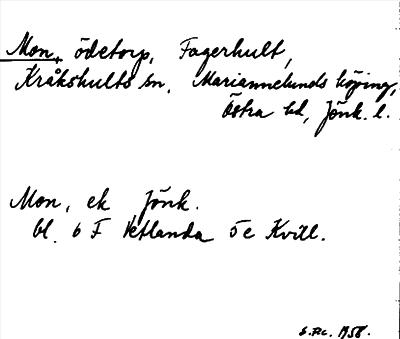 Mon, ödetorp, Fagerhult,
Kråkshults sn, Mariannelunds köping,
Östra hd, Jönk. l.
Mon, ek Jönk.
bl. 6 F Vetlanda 5 e Kvill.
1958.